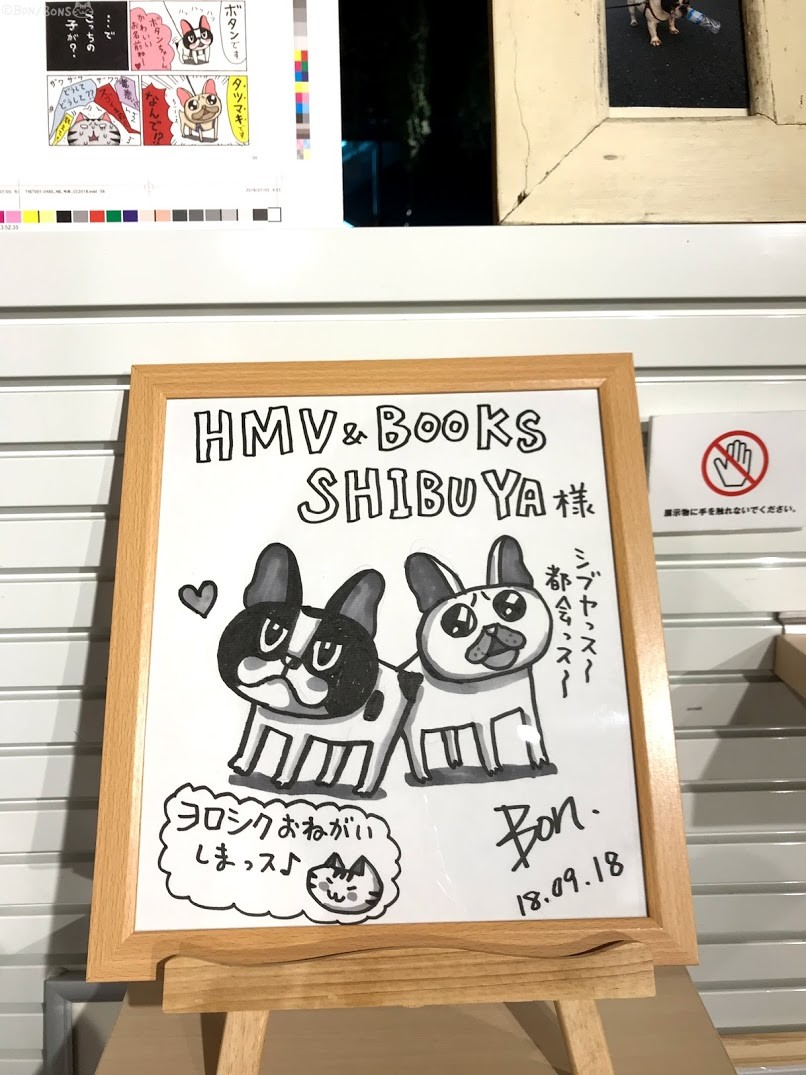 ©BON/BONSC
ボタンです
ハッハッハッ
ボタンちゃ〜ん
かわいい
お名前ね
…で
こっちの
子が？
タツマキです
なんで!?
どうして
どうして??
HMV & BOOKS
SHIBUYA様
シブヤっス〜
都会っス〜
ヨロシクおねがい
しまっス♪
Bon.
18.09.18
展示物に手を触れないでください。